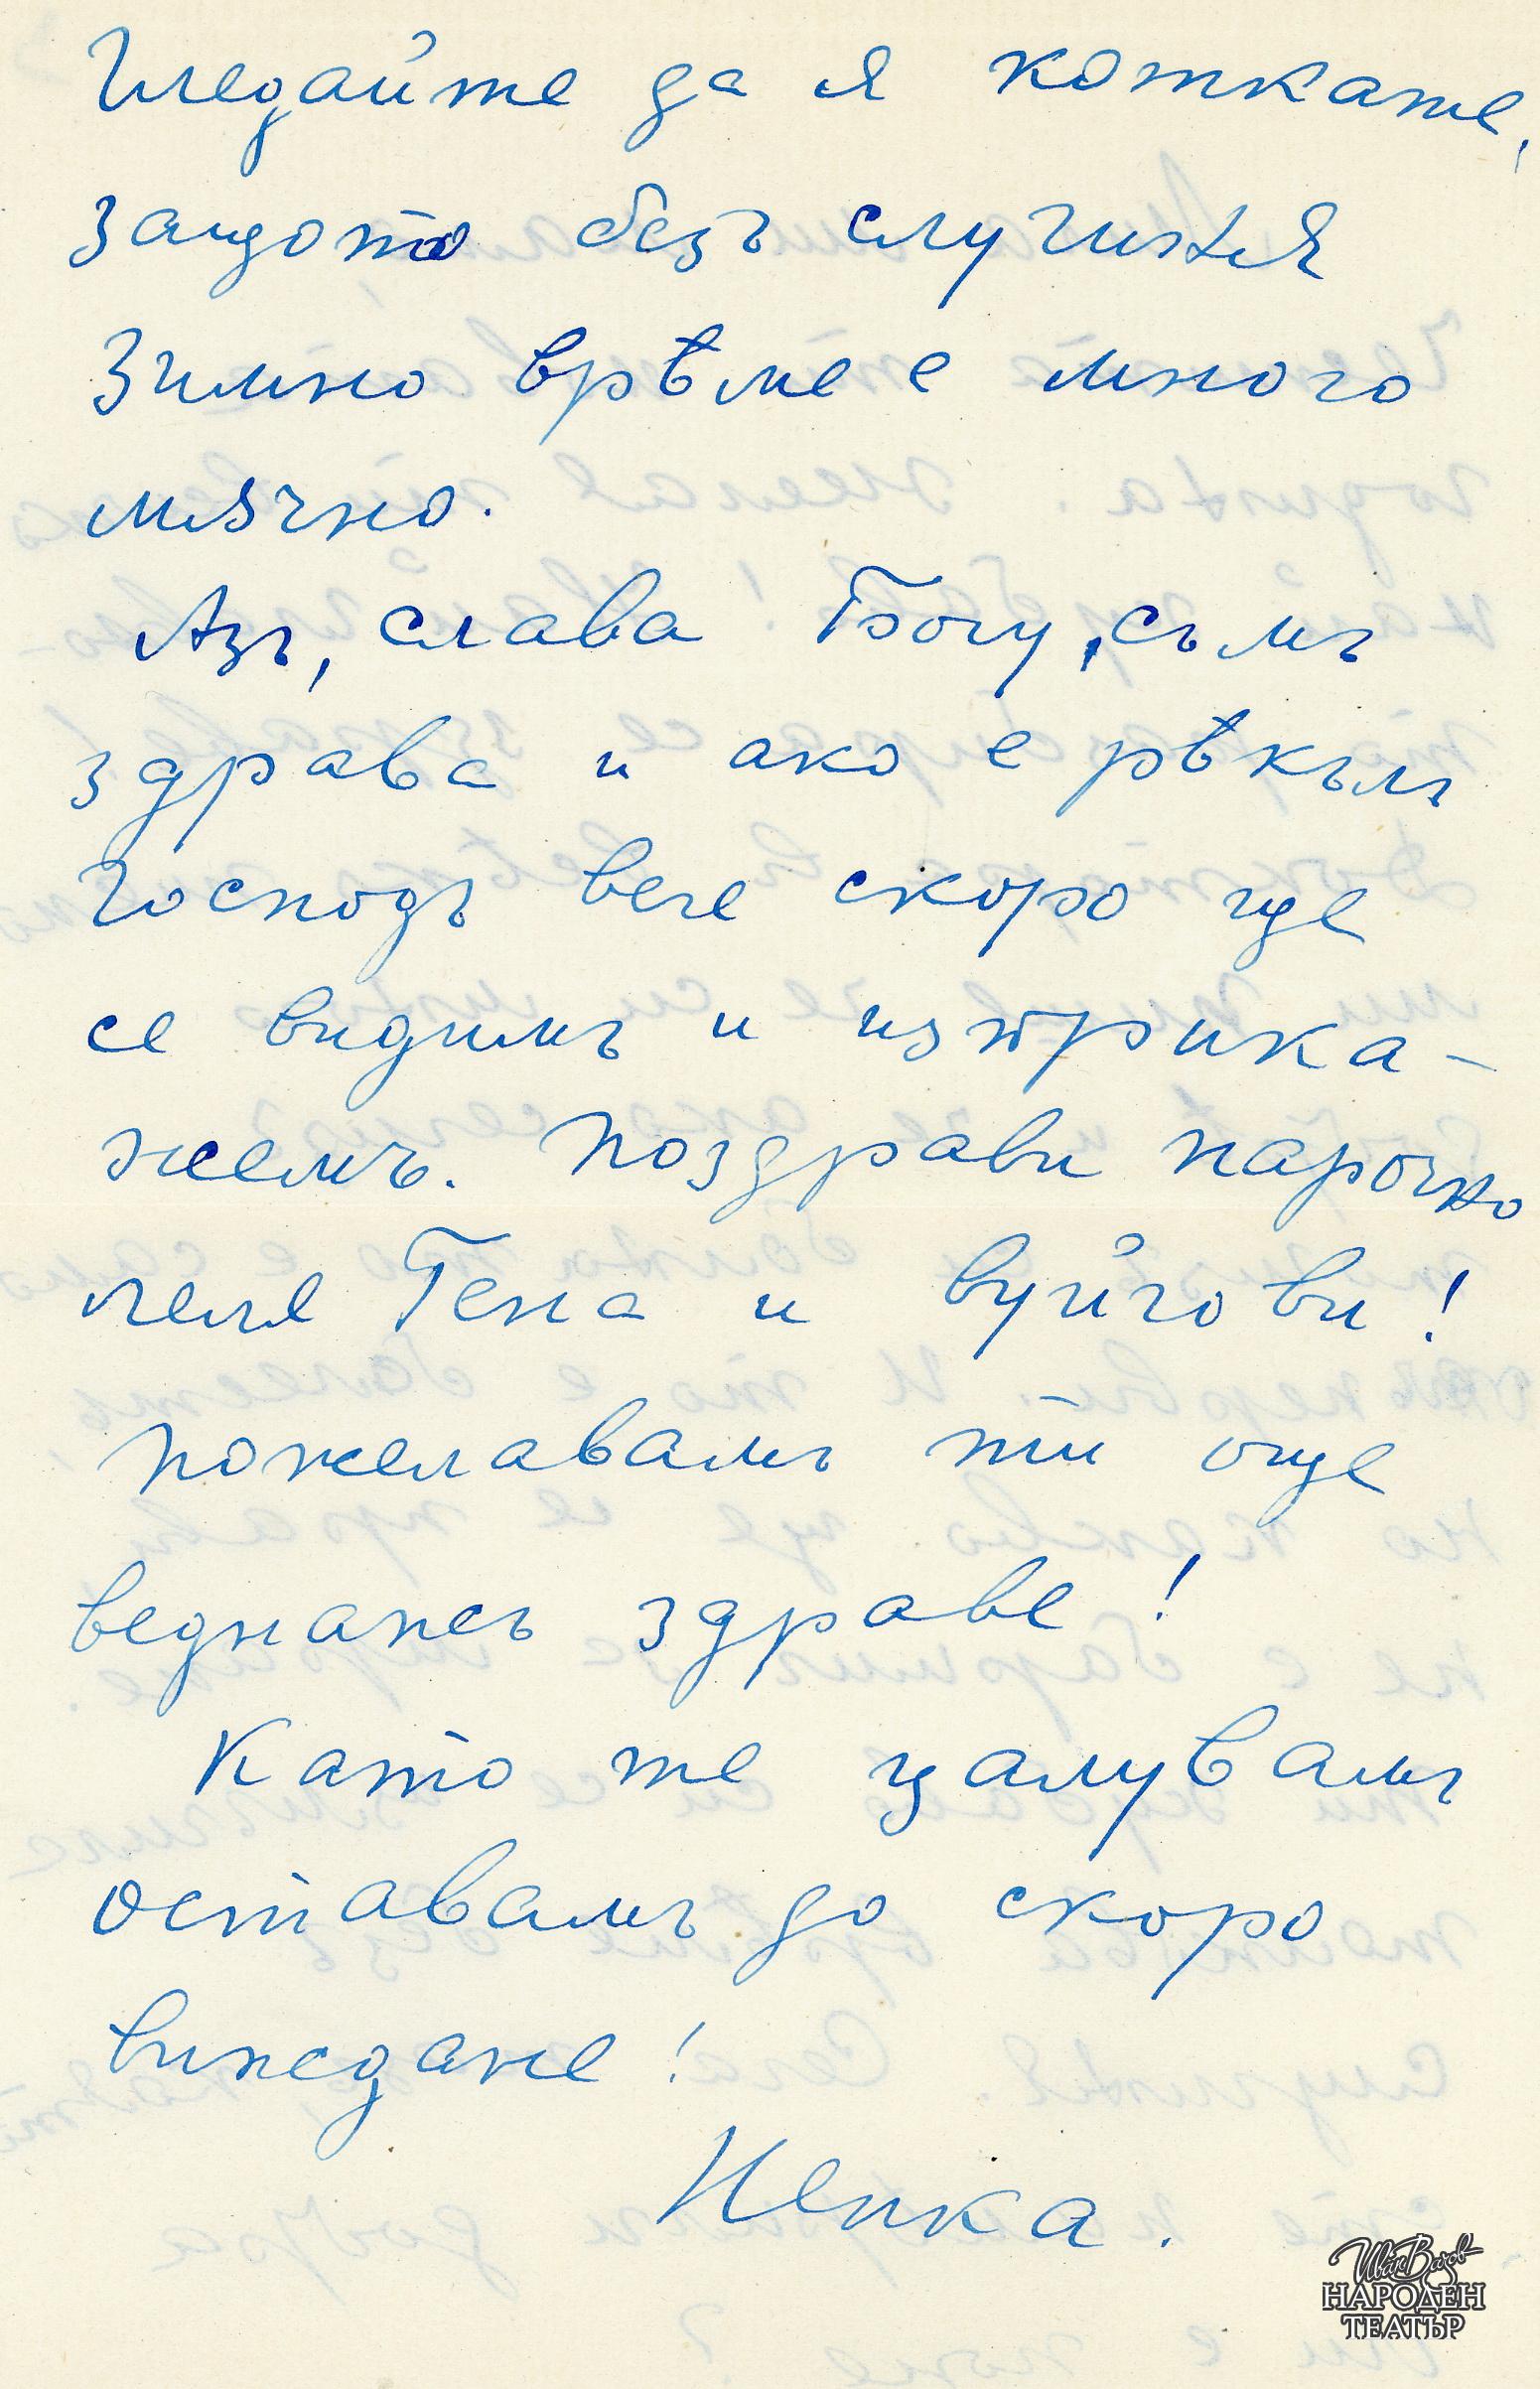 Гледайте да я коткате,
защото безъ слугиня
зимно врѣме е много
мѫчно.
Азъ, слава Богу, съмъ
здрава и ако е рѣкълъ
Господъ вече скоро ще
се видимъ и изприка-
жемъ. Поздрави нарочно
леля Гена и вуйчови!
Пожелавамъ ти още
веднажъ здраве!
Като те цалувамъ
оставамъ до скоро
виждане!
Ненка.
Иван Вазов
НАРОДЕН
ТЕАТЪР